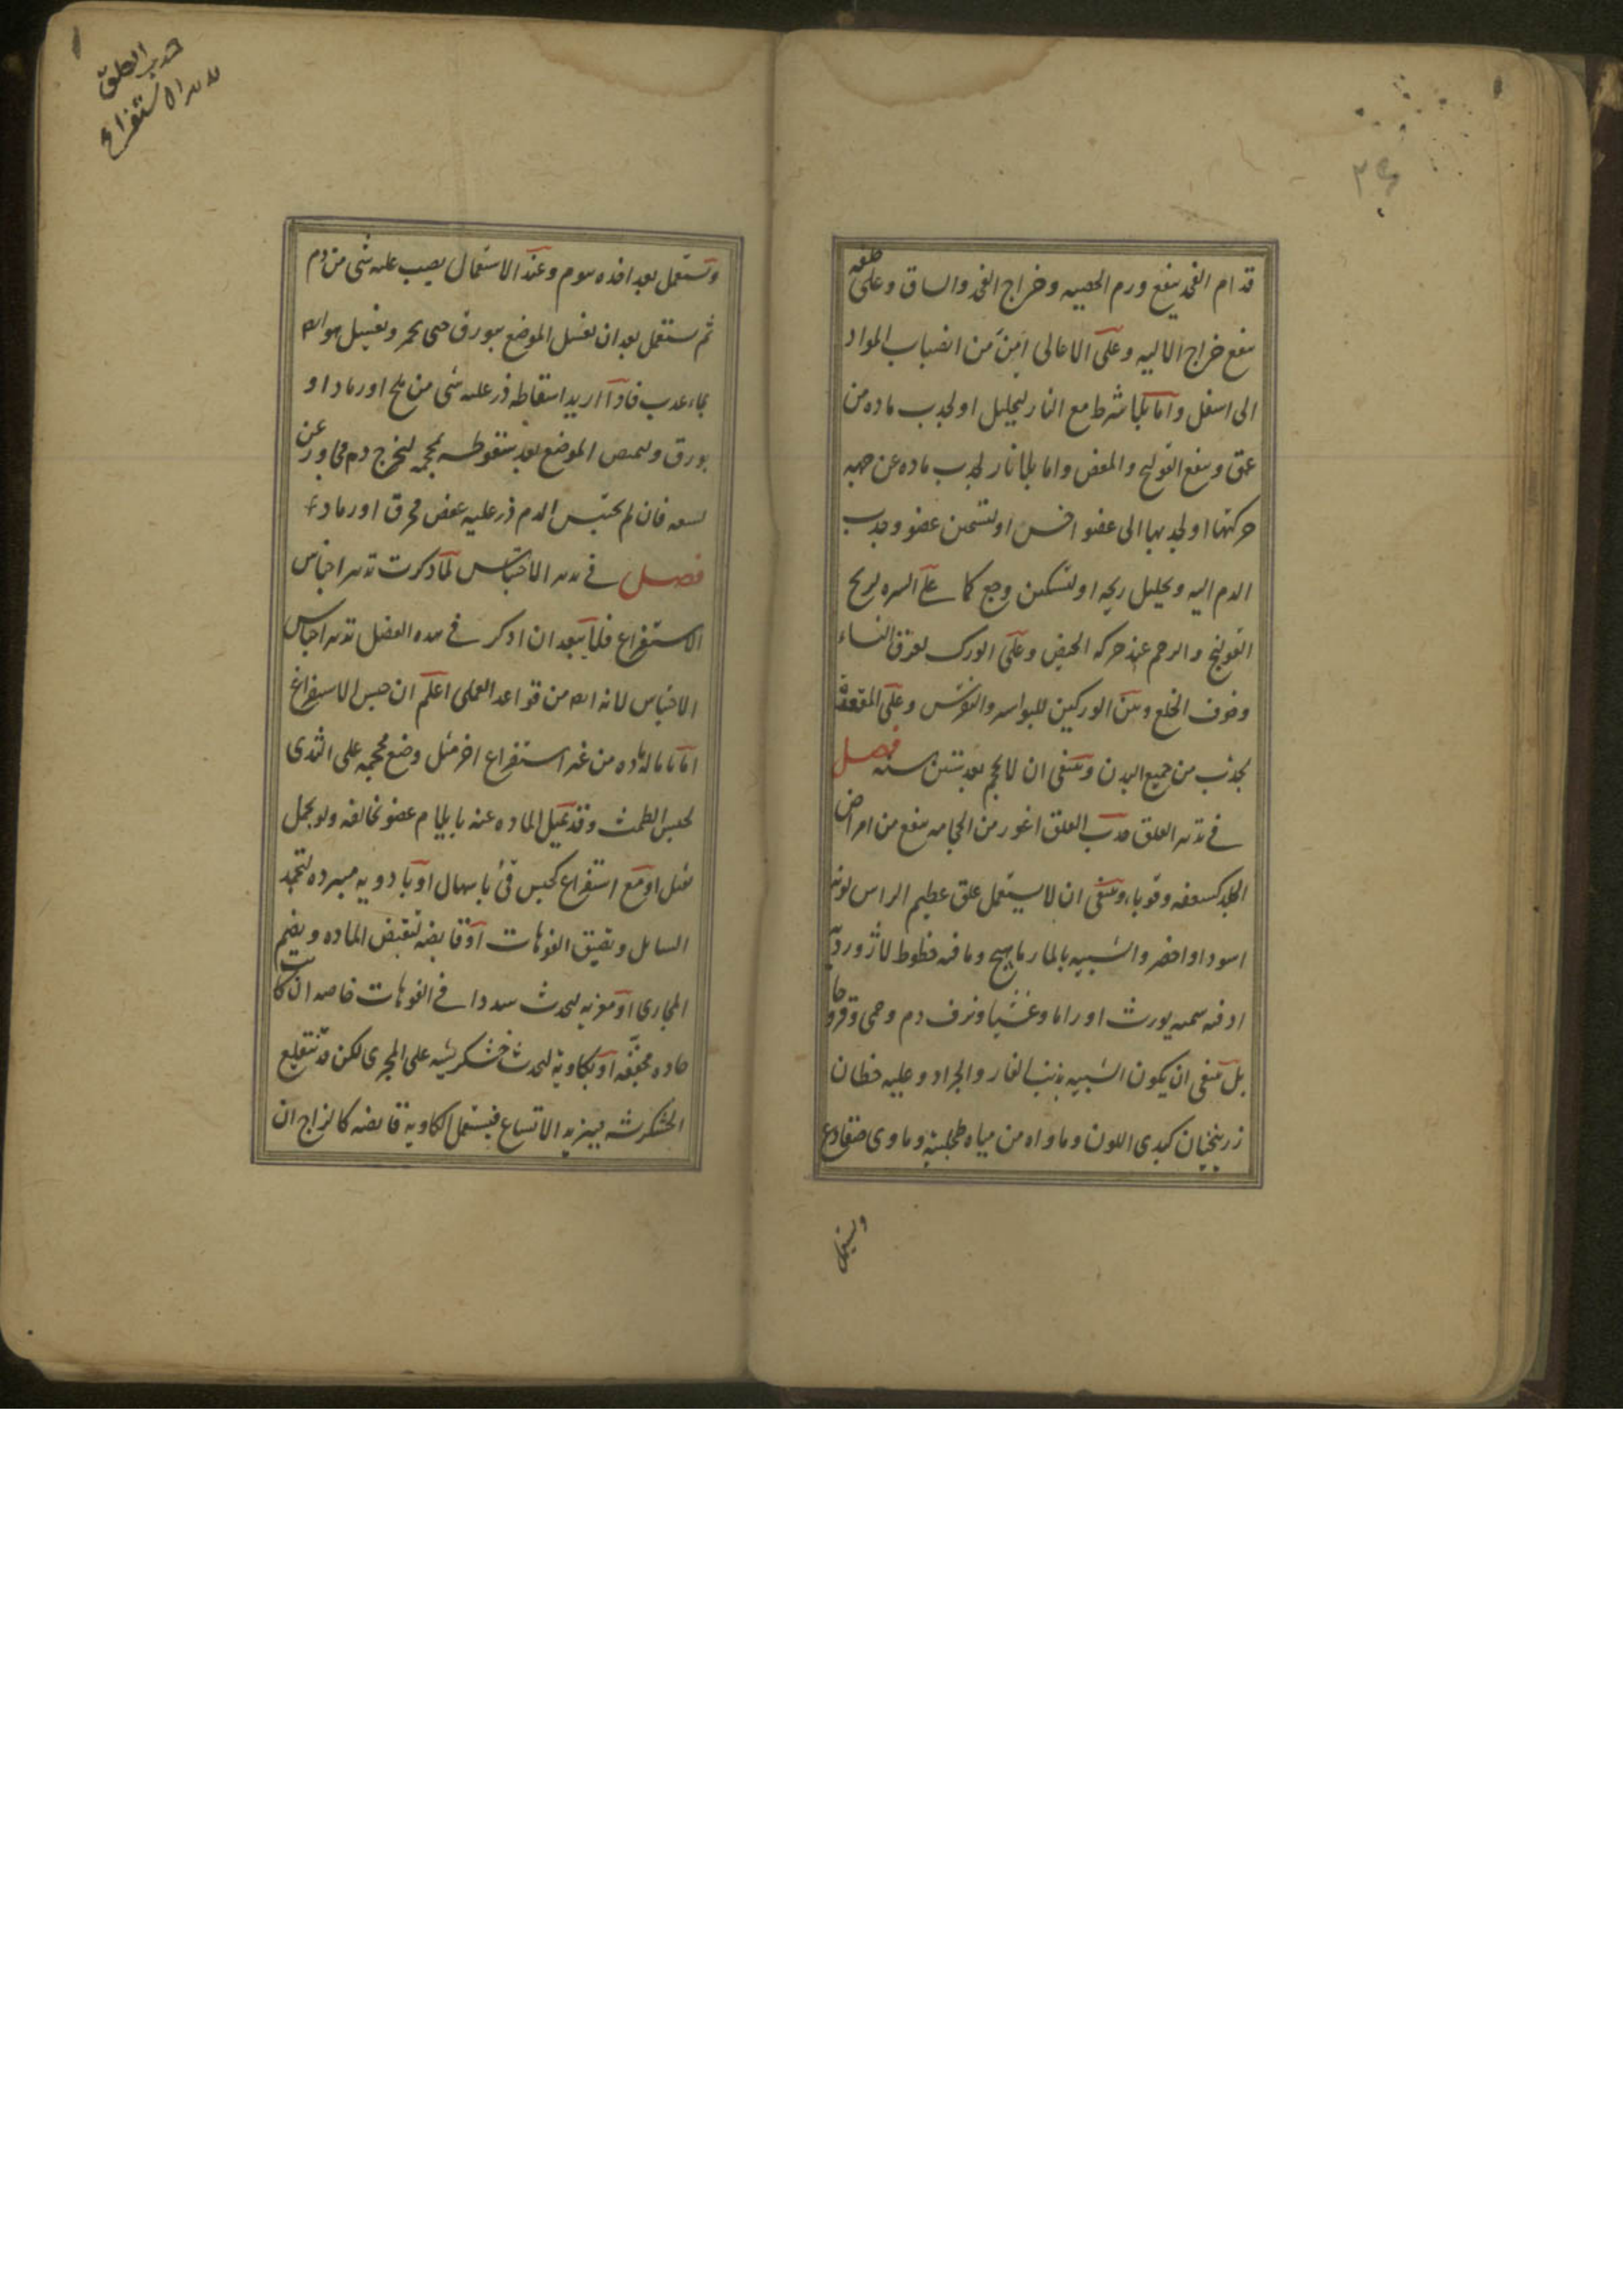 قدام الفخذ ينفع ورم الخصيه وخراج الفخذ والساق وعلى خلفه
ينفع خراج الاليه وعلى الاعالى امن من انصباب المواد
الى اسفل واما بلا شرط مع النار لتحليل او لجذب ماده من
عمق وينفع القولنج والمغص واما بلا نار لجذب ماده عن جهه
حركتها او لجذبها الى عضو اخس او لتسخين عضو وجذب
الدم اليه وتحليل ريحه او لتسكين وجع كما على السره لريح
القولنج والرحم عند حركه الحيض وعلى الورك لعرق النساء
وخوف الخلع وبين الوركين للبواسير والنقرس وعلى المقعده
تجذب من جميع البدن وينبغى ان لا يحجم بعد ستين سنه فصل
فى تدبير العلق جذب العلق اغور من الحجامه ينفع من امراض
الجلد كسعفه وقوباء وينبغى ان لا يستعمل علق عظيم الراس لونه
اسود او اخضر والشبيه بالمارماهيج وما فيه خطوط لاژورديه
اذ فيه سميه يورث اوراما وغشيا ونزف دم وحمى وقروحا
بل ينبغى ان يكون الشبيه بذنب الفار والجراد وعليه خطان
زرنيخيان كبدى اللون وماواه من مياه طحلبيه وماوى ضفادع
ويستعمل
جذب العلق
تدبير الاستفراغ
وتستعمل بعد اخذه بيوم وعند الاستعمال يصب عليه شى من دم
ثم يستعمل بعد ان يغسل الموضع ببورق حتى يحمر ويغسل هو ايضا
بماء عذب فاذا اريد اسقاطه ذر عليه شى من ملح او رماد او
بورق وليمص الموضع بعد سقوطه بمحجمه ليخرج دم مجاور عن
لسعه فان لم يحتبس الدم ذر عليه عفص محرق او رماد
فصل فى تدبير الاحتباس لما ذكرت تدبير اجناس
الاستفراغ فلا يبعد ان اذكر فى هذه الفصل تدبير اجناس
الاحتباس لانه ايضا من قواعد العملى اعلم ان حبس الاستفراغ
اما باماله ماده من غير استفراغ اخر مثل وضع محجمه على الثدى
لحبس الطمث وقد تميل الماده عنه بايلام عضو تخالفه ولو بحمل
ثقيل او مع استفراغ كحبس قئ باسهال او بادويه مبرده لتجمد
السايل وتضيق الفوهات او قابضه لتقبض الماده ويضم
المجارى او مغريه لتحدث سددا فى الفوهات خاصه ان كانت
حاده مجففه او بكاويه لتحدث خشكريشه على المجرى لكن قد تتقلع
الخشكريشه فيزيد الاتساع فيستعمل الكاويه قابضه كالزاج ان